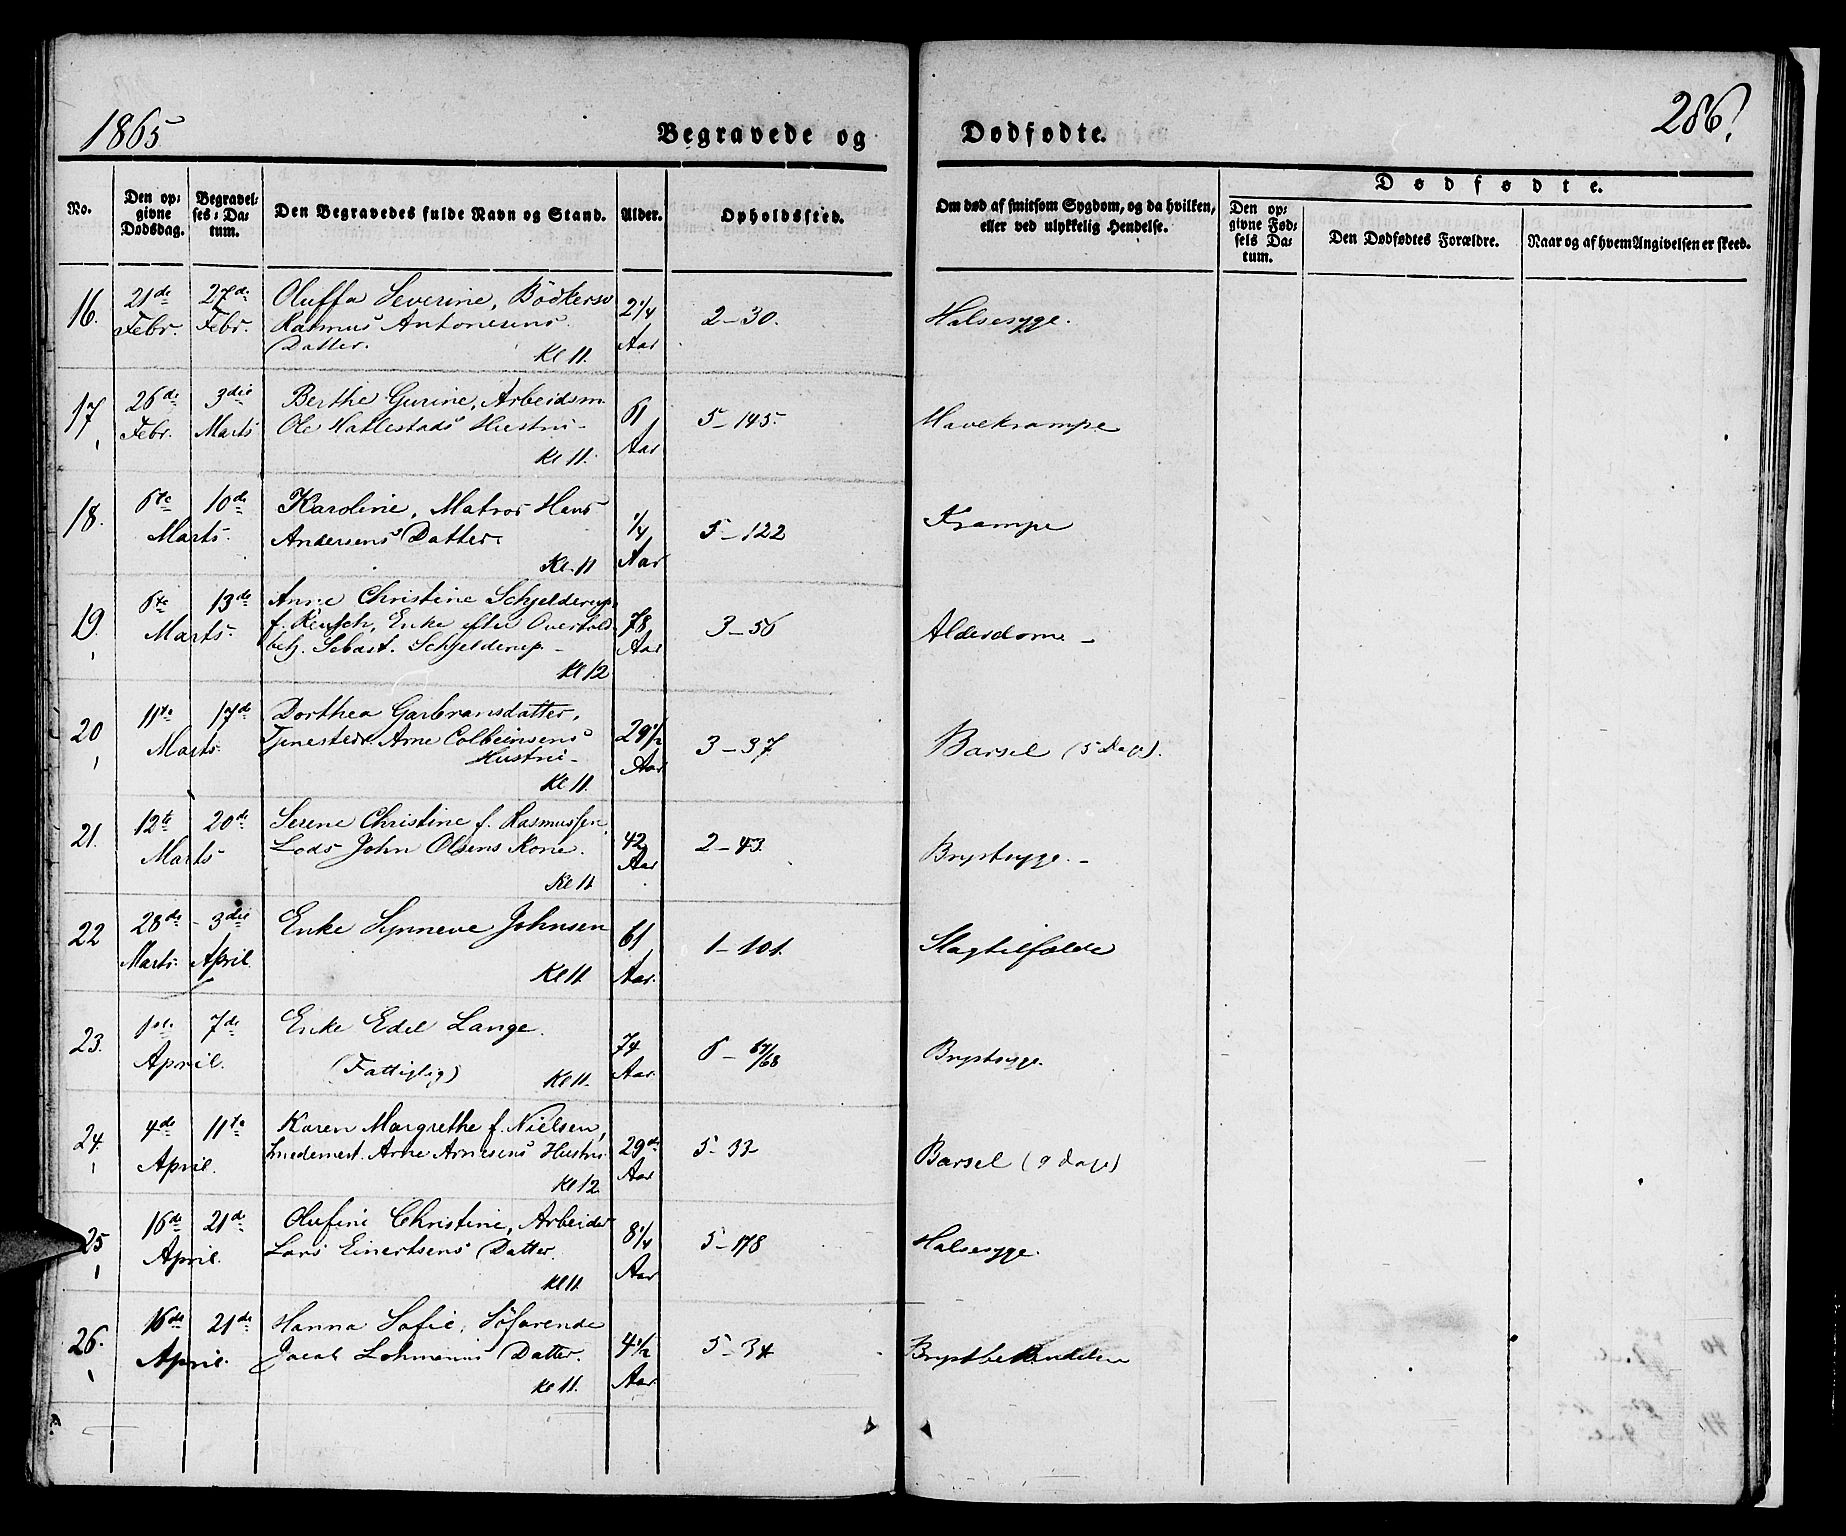 1865
Begravede og Dødfødte.
286.
No.
Den opgivne Dødsdag.
Begravelses-Datum.
Den Begravedes fulde Navn og Stand.
Alder.
Opholdssted.
Om død af smitsom Sygdom, og da hvilken, eller ved ulykkelig Hendelse.
Dødfødte.
Den opgivne Fødsels Datum.
Den Dødfødtes Forældre.
Naar og af hvem Angivelsen er skeed.
16. 21de 27de Oluffa Severine, Bödkersv 2 1/4 2-30. Halsesyge.
Febr. Febr. Rasmus Antonesens Aar
Datter. Kl 11.
17 26de 3die Berthe Gurine, Arbeidsm 61 5-145. Mavekrampe
Febr. Marts Ole Hatlestads Hustru- Aar
Kl 11.
18. 6te 10de Karoline, Matros Hans 1/4 5-122 Krampe
Marts. Andersens Datter. Aar
Kl. 11
19. 6te 13de Anne Christine Schjelderup 78 3-56 Alderdom-
Marts. f. Reusch, Enke efter Overtold Aar
betj. Sebast. Schjelderup-
Kl 12
20 11te 17de Dorthea Garbransdatter, 29 1/2 3-37 Barsel (5 Dage).
Marts. Tjenestedr. Arne Colbeinsens Aar
Hustru-
Kl 11.
21. 12te 20de Serene Christine f. Rasmussen, 42 2-43. Brystsyge.-
Marts Lods John Olsens Kone. Aar
Kl 11
22 28de 3die Enke Synneve Johnsen 61 1-101. Slagtilfælde
Marts. April. Kl 11. Aar.
23. 1ste 7de Enke Edel Lange. 74 6-67/68 Brystsyge.
April. (Fattiglig) Kl 11. Aar.
24. 4de 11te Karen Margrethe f. Nielsen, 29 5-32 Barsel (9 Dage)
April. Smedemest. Arne Arnesens Hustru Aar
Kl 12
25 16de 21de Olufine Christine, Arbeider 8 1/4 5-178 Halsesyge.
April. Lars Einertsens Datter. Aar
Kl 11.
26. 16de 21de Hanna Sofie, Söfarende 4 1/2 5-34 Brystbe
April. Jacob Lohmanns Datter. Aar.
Kl 11.